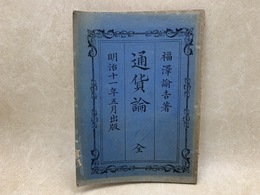 福澤諭吉著
通貨論 全
明治十一年五月出版